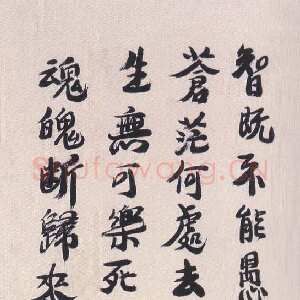 智既不能愚
蒼茫何處去
生無可樂死
魂魄斷歸來
Shufawang.CN